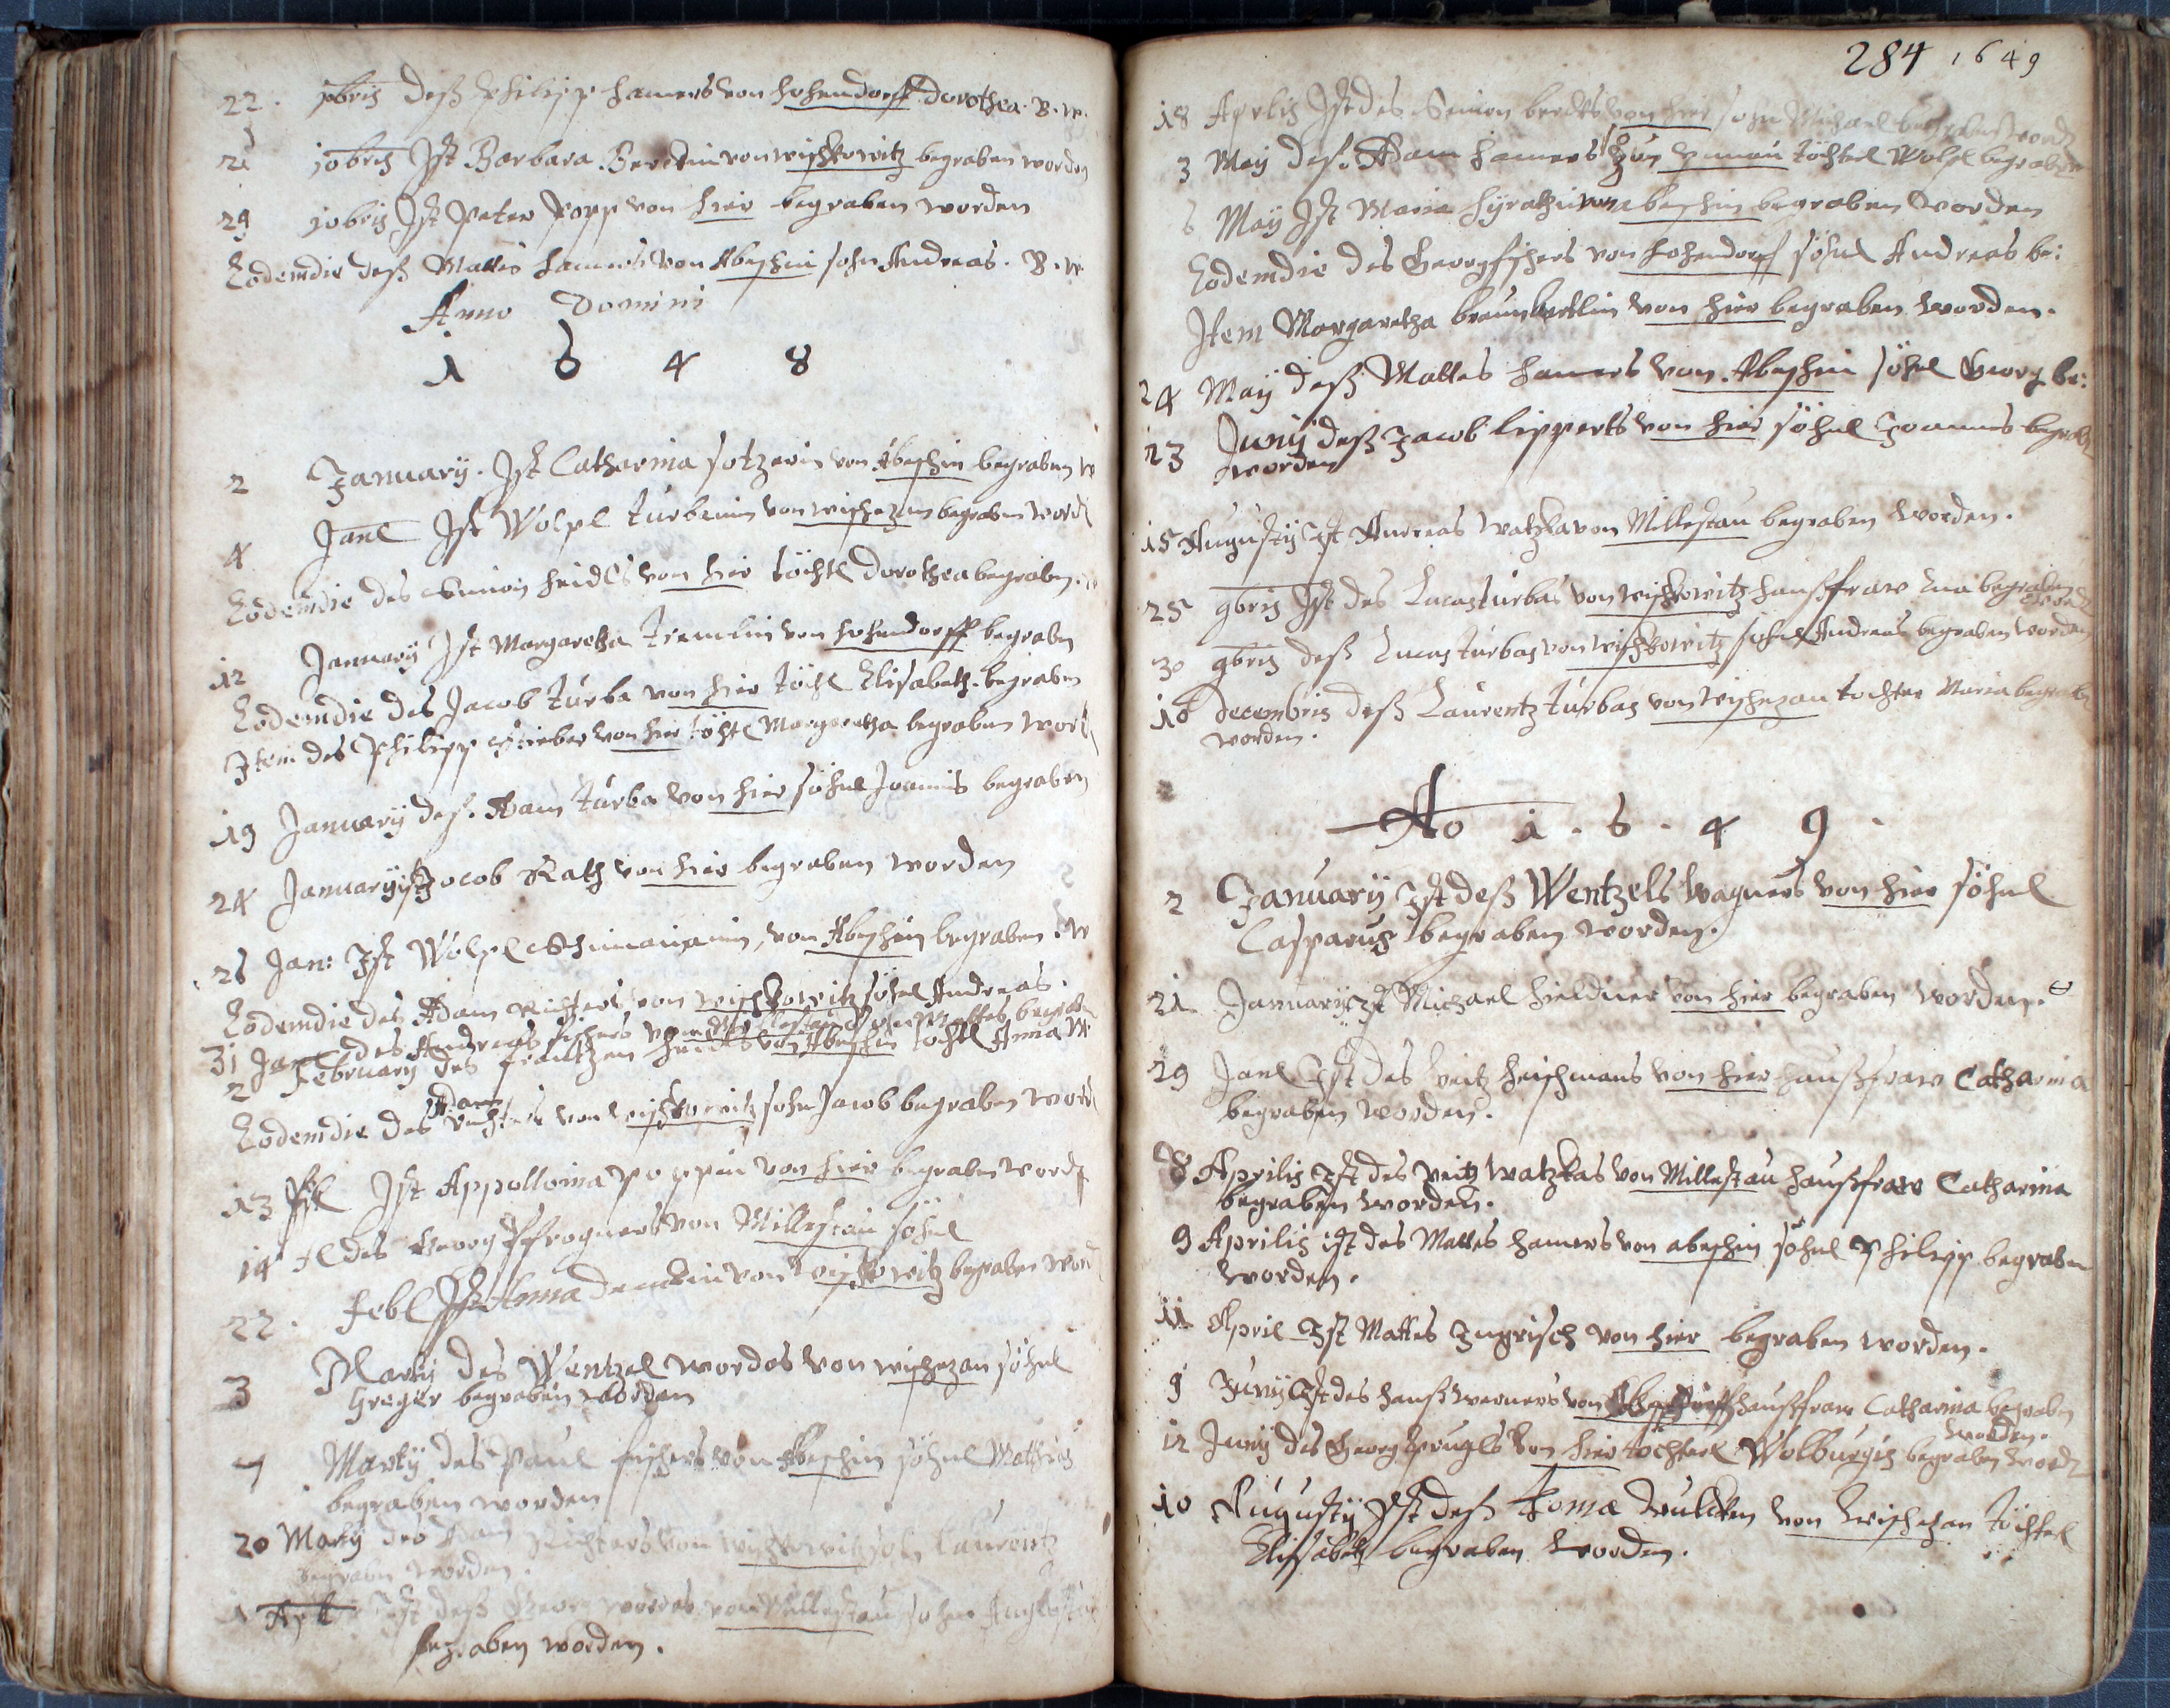 22. xbris deß Philipp hamers von hohendorff Dorothea. B. w.
2 10bris Ist Barbara von wischkowitz begraben worden
29 10bris Ist Peter Popp von hier begraben worden
Eodemdie deß Mattes hamers von Abeschin sohn Andreas. B. w
Anno Domini
1 6 4 8
2 January. Ist Catharina von Abeschin begraben w
4 Janl Ist Wolpl Turbanin von wischezan begraben word
Eodemdie des Simon heidls von hier töchtl Dorothea begraben.
12 January Ist Margaretha von hohendorff begraben
Eodemdie des Jacob Turba von hier töchl Elisabeth begraben
Item des Philipp von hier töchtl Margaretha begraben word
19 January deß. Adam Turba von hier söhnl Joannis begraben
24 January ist Jacob Rath von hier begraben worden
26 Jan: Ist Wolpl von Abeschin begraben. w
Eodemdie des Adam Richters von wischkowitz söhnl Andreas.
31 Janl des Andreas fischers von Millestau Sohn Mattes begraben
2 February des frantzen heidls von Abeschin töchtl Anna w
Eodemdie des Adam Richters von wischkowitz sohn Jacob begraben word
13 Ist Appollonia Poppin von hier begraben word
14 des Georg Pfrogners von Millestau söhnl
22. Febl Ist Anna von wischkowitz begraben word
3 Marty des Wentzel wordas von wischezan söhnl
Greger begraben worden
7 Marty des Paul fischers von Abeschin söhnl Mathias
begraben worden
20 Marty des Adam Richters von wischkowitz sohn Laurentz
begraben worden.
1 Apl Ist deß Georg von Millestau sohn
begraben worden.
284 1649
18 Aprilis Ist des Simon von hier sohn Michael begraben word
3 May deß. Adam hamers zun töchterl Wolpl begraben
6 May Ist Maria von abeschin begraben worden
Eodemdie des Georg fischers von hohendorff söhnl Andreas be:
Item Margaretha von hier begraben worden.
24 May deß Mattes hamers von Abeschin söhnl Georg be:
23 Juny deß Jacob Lipperts von hier söhnl Joannes begraben
worden
15 Augusty Ist Andreas Watzka von Millestau begraben worden.
25 9bris Ist des Lucas Turbas von wischkowitz haußfraw Eva begraben
word
30 9bris deß Lucas Turbas von wischkowitz söhnl Andreas begraben worden
18 Decembris deß Laurentz Turbas von wischezan tochter Maria begraben
worden.
Ao 1. 6. 4 9.
2 January Ist deß Wentzels Wagners von hier söhnl
Casparus begraben worden.
21 January Ist Michael von hier begraben worden.
29 Janl Ist des veitz heischmans von hier haußfraw Catharina
begraben worden.
8 Aprilis Ist des veitz Watzkas von Millestau haußfraw Catharina
begraben worden.
9 Aprilis ist des Mattes hamers von abeschin söhnl Philipp begraben
worden.
11 April Ist Mattes Ingrisch von hier begraben worden.
9 Juny Ist des hanß werners von haußfraw Catharina begraben
worden.
12 Juny des Georg von hier töchterl Wolburgis begraben word
10 Augusty Ist deß Toma von wischezan töchterl
Elisabetz begraben worden.